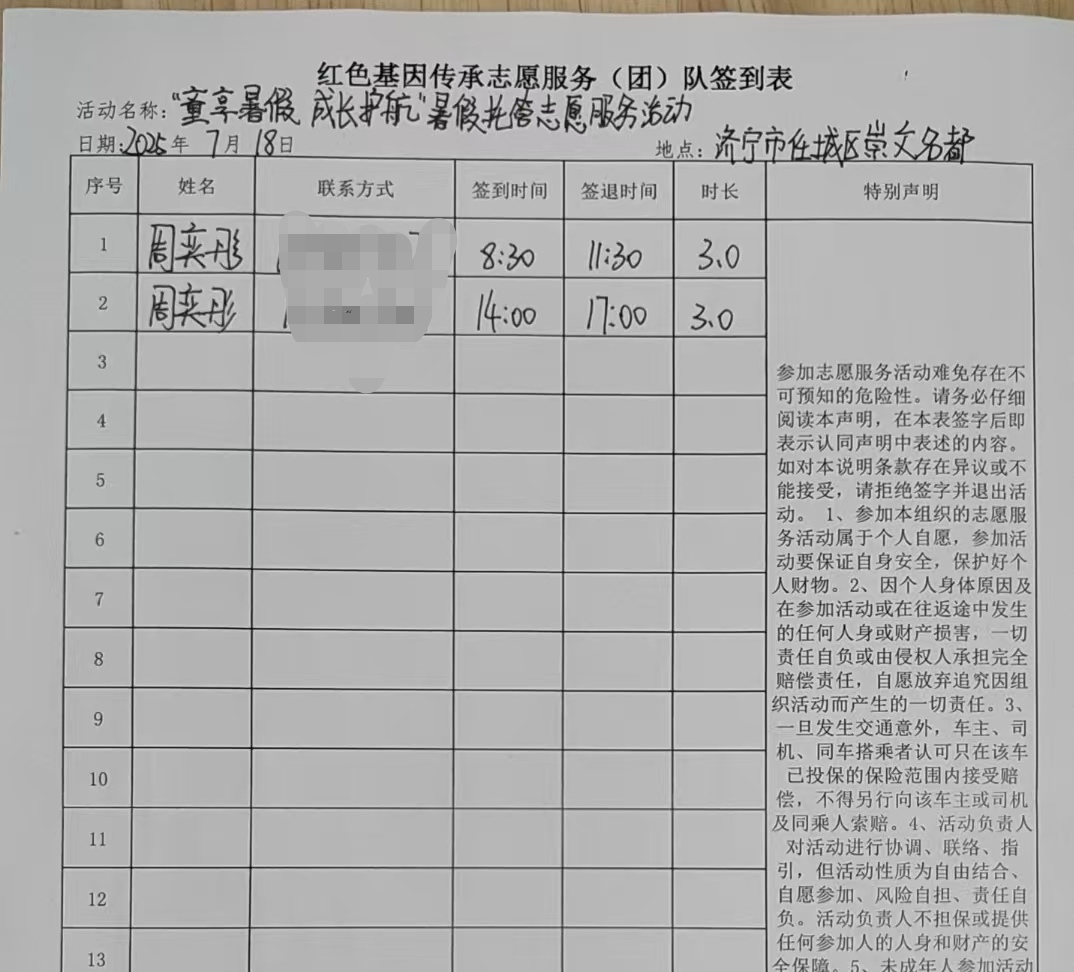 红色基因传承志愿服务（团）队签到表
活动名称：“童享暑假 成长护航”暑假托管志愿服务活动
日期：2025年 7月 18日 地点：济宁市任城区崇文名都
序号 姓名 联系方式 签到时间 签退时间 时长 特别声明
1 周奕彤 8:30 11:30 3.0
2 周奕彤 14:00 17:00 3.0
3
4
5
6
7
8
9
10
11
12
13
参加志愿服务活动难免存在不
可预知的危险性。请务必仔细
阅读本声明，在本表签字后即
表示认同声明中表述的内容。
如对本说明条款存在异议或不
能接受，请拒绝签字并退出活
动。 1、参加本组织的志愿服
务活动属于个人自愿，参加活
动要保证自身安全，保护好个
人财物。2、因个人身体原因及
在参加活动或在往返途中发生
的任何人身或财产损害，一切
责任自负或由侵权人承担完全
赔偿责任，自愿放弃追究因组
织活动而产生的一切责任。3、
一旦发生交通意外，车主、司
机、同车搭乘者认可只在该车
已投保的保险范围内接受赔
偿，不得另行向该车主或司机
及同乘人索赔。4、活动负责人
对活动进行协调、联络、指
引，但活动性质为自由结合、
自愿参加、风险自担、责任自
负。活动负责人不担保或提供
任何参加人的人身和财产的安
全保障。5、未成年人参加活动